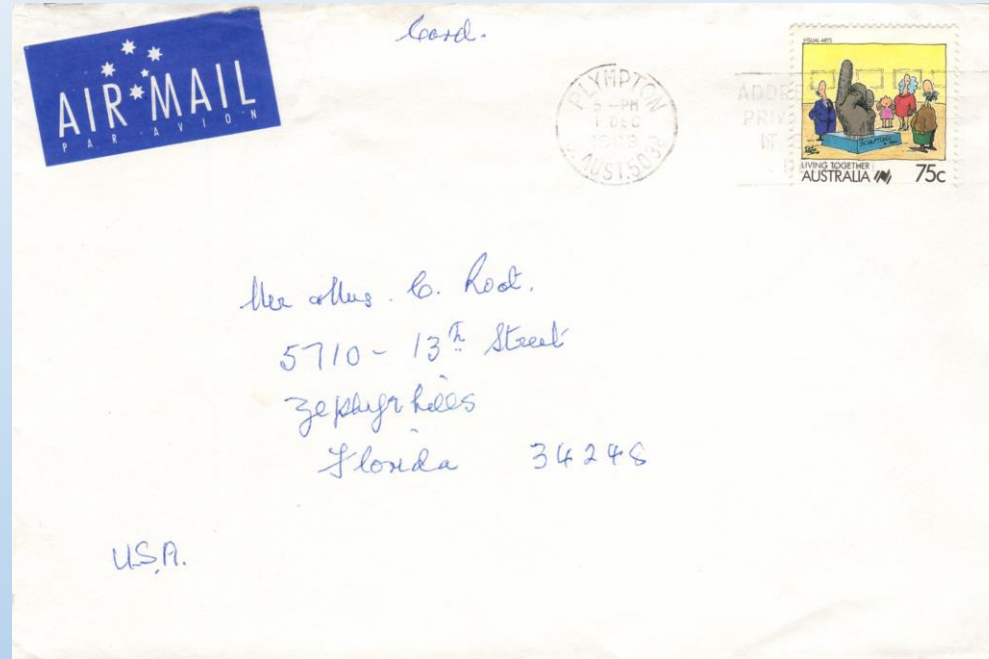 Card.
AIR MAIL
PAR AVION
PLYMPTON
5 - PM
1 DEC
S. AUST. 5038
ADDR
PRIV
VISUAL ARTS
SCULPTURE
LIVING TOGETHER
AUSTRALIA 75c
Mr & Mrs. C. Root.
5710 - 13th Street
Zephyrhills
Florida 34248
U.S.A.